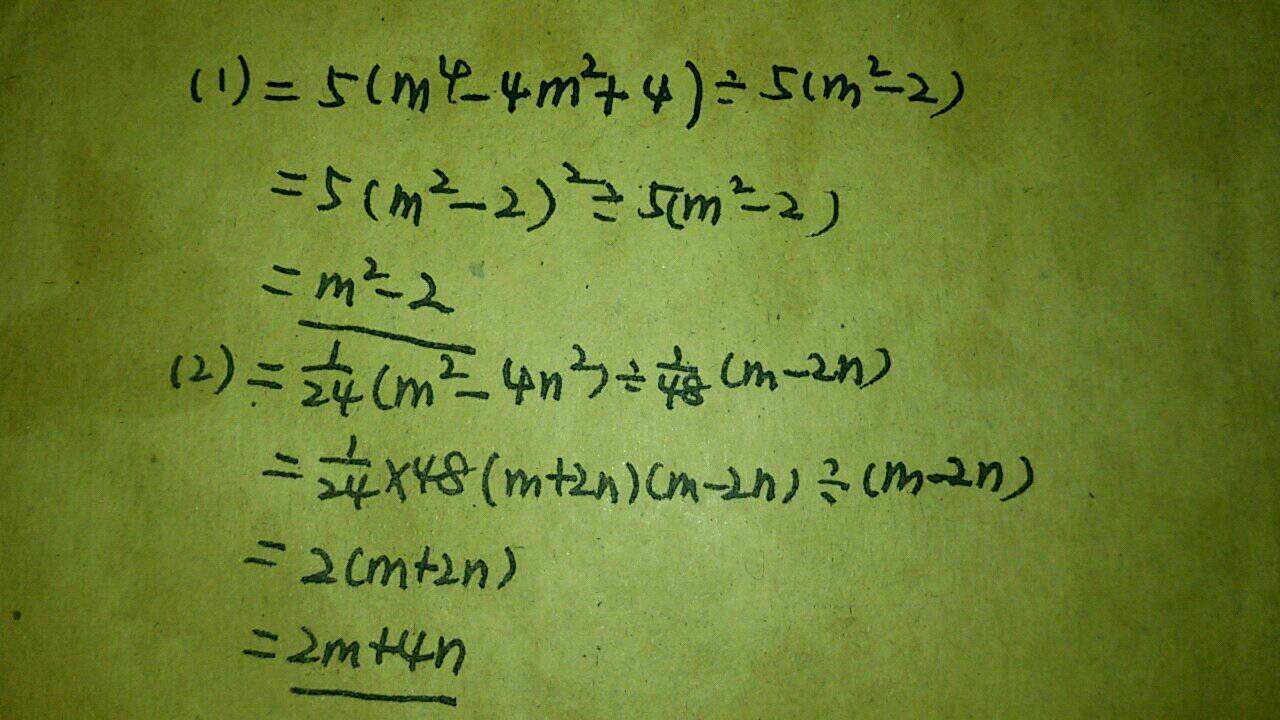 (1) = 5(m⁴-4m²+4)÷5(m²-2)
= 5(m²-2)²÷5(m²-2)
= m²-2
(2) = 1/24(m²-4n²)÷1/48(m-2n)
= 1/24×48(m+2n)(m-2n)÷(m-2n)
= 2(m+2n)
= 2m+4n